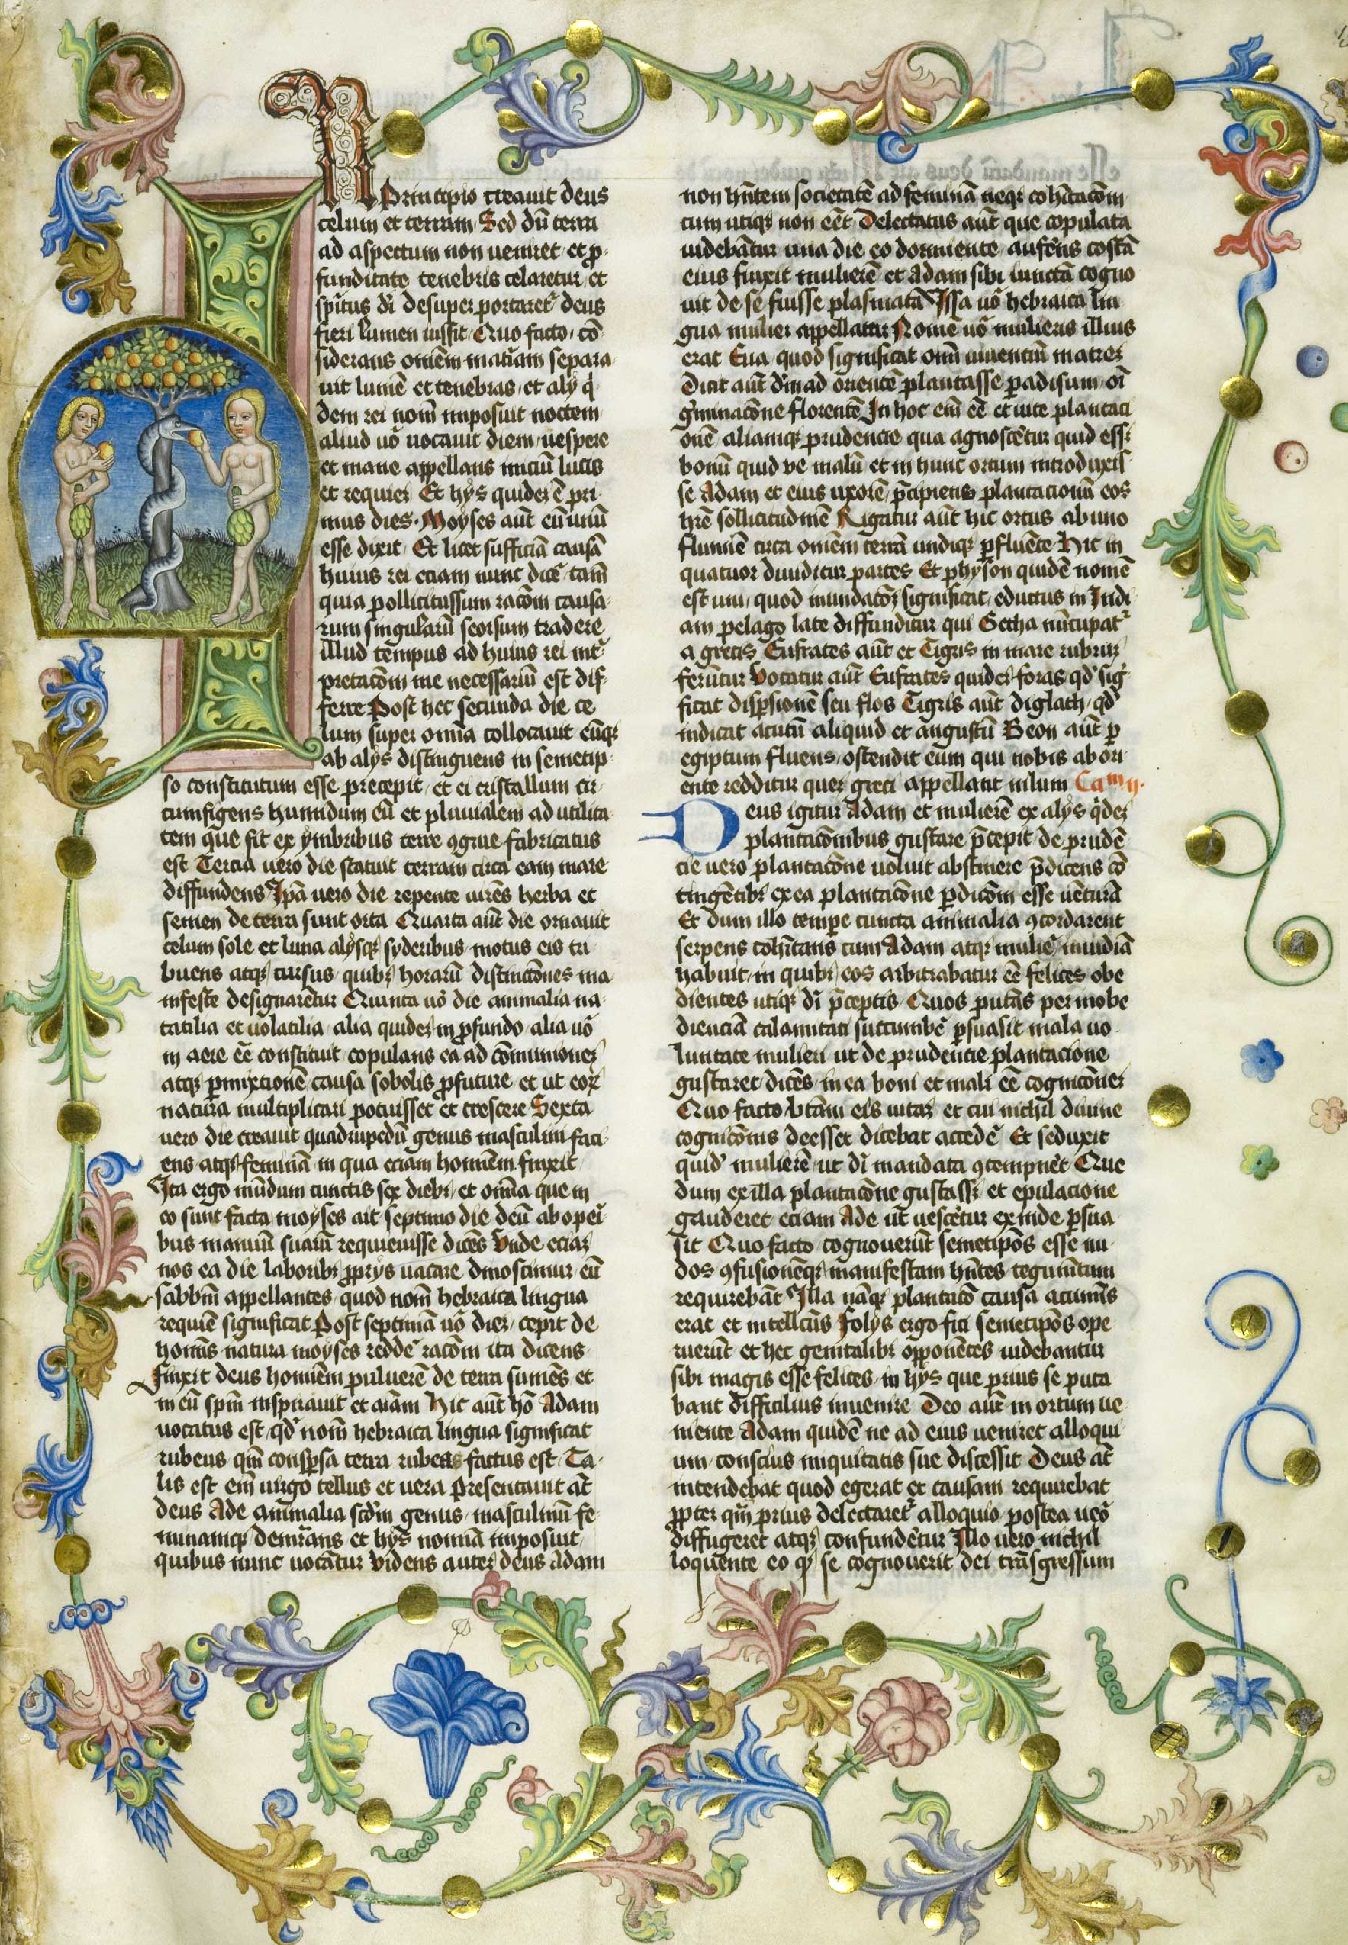 N Principio creauit deus
celum et terram Sed dū terra
ad aspectum non veniret et ꝓ-
funditate tenebris celaretur et
spūs dī desuper portaretr deus
fieri lumen iussit Quo facto cō
siderans omēm matīam separa
uit lumē et tenebras et alij q̄
dem rei nom̄ imposuit noctem
aliud vō vocauit diem vespere
et mane appellans iniciū lucis
et requiei Et hijs quidē ē pri
mus dies Moyses aūt eū unū
esse dixit Et licet sufficiā causā
huius rei eciam nunc dicē tam̄
quia pollicitussum racōm causa
rum singularū seorsum tradere
illud tempus ad huius rei int̄
pretacōm me necessariū est dif
ferre Post hec secunda die ce
lum super om̄ia collocauit eūqꝫ
ab alijs distinguens in semetip
so constitutum esse precepit et ei cristallum cir
cumfigens humidum eū et pluuialem ad utilita
tem que fit ex ymbribus terre ꝯgrue fabricatus
est Tercia uero die statuit terram circa eam mare
diffundens Ip̄a uero die repente virēs herba et
semen de terra sunt orta Quarta aūt die ornauit
celum sole et luna alijsqꝫ syderibus motus eis tri
buens atqꝫ cursus quibꝫ horarū distinctōnes ma
nifeste designarētur Quinta vō die animalia na
tatilia et volatilia alia quidē in ꝓfundo alia vō
in aere eē constituit copulans ea ad cōmunionē
atqꝫ ꝑmixtionē causa sobolis ꝓfuture et ut eoꝝ
natura multiplicari potuisset et crescere Sexta
uero die creauit quadrupedū genus masculini faci
ens atqꝫ feminā in qua eciam hominem finxit
Ita ergo mūdum cunctis sex diebꝫ et om̄ia que in
eo sunt facta moyses ait septimo die deū ab operi
bus manuū suarū requieuisse dicēs Vnde eciā
nos ea die laboribꝫ ꝓprijs uacare dinoscimur eū
sabbm̄ appellantes quod nom̄ hebraica lingua
requiē significat Post septimā vō diē cepit de
homīs natura moyses reddē racōm ita dicens
Finxit deus homiēm puluerē de terra sumēs et
in eū spm̄ inspirauit et aīam Hic aūt hō Adam
uocatus est qd̄ nom̄ hebraica lingua significat
rubeus qm̄ conspersa terra rubea factus est Ta
lis est em̄ uirgo tellus et uera Presentauit aūt
deus Ade animalia scdm̄ genus masculinū fe
mininamqꝫ demr̄ans et hijs nomīa imposuit
quibus nunc uocātur Videns autē deus Adam
non hn̄tem societatē ad feminā neqꝫ cohītacōm
cum utiqꝫ non eēt Delectatus aūt que copulata
uidebātur una die eo dormiente aufer̄ns costā
eius finxit mulierē et Adam sibi iunctā cogno
uit de se fuisse plasmatā Issa vō hebraica lin
gua mulier appellatur Nomē vō mulieris illius
erat Eua quod significat om̄i uiuentiū matrē
Dicit aūt dm̄ ad orientē plantasse ꝑadisum om̄i
g̃minacōne florentē In hoc em̄ eē et uite plantaci
onē aliamqꝫ prudencie qua agnoscētur quid esset
bonū quid ve malū et in hunc ortum introduxis
se Adam et eius uxorē p̄cipiens plantacionū eos
hr̄e sollicitudinē Rigatur aūt hic ortus ab uno
flumīe circa om̄em terrā undiqꝫ ꝑfluēte Hic in
quatuor diuiditur partes Et physon quidē nomē
est uni quod inundacōꝫ significat eductus in Indi
am pelago late diffunditur qui Getha nūcupatr
a grecis Eufrates aūt et Tigris in mare rubrum
ferūtur Vocatur aūt Eufrates quidē foras qd̄ sig
ficat disꝑsionē seu flos Tigris aūt diglath qd̄
indicat acutū aliquid et angustū Geon aūt ꝑ
egiptum fluens ostendit eum qui nobis ab ori
ente redditur quē greci appellant nilum Cam ij.
Deus igitur Adam et mulierē ex alijs q̄dē
plantacōnibus gustare p̄cepit de prudē
cie uero plantacōne uoluit abstinere p̄dicens cō
tingētibꝫ ex ea plantacōne ꝑdicōm esse uēturā
Et dum illo temꝑe cuncta animalia ꝯcordarent
serpens cohītans cum Adam atqꝫ muliē inuidiā
habuit in quibꝫ eos arbitrabatur eē felices obe
dientes utiqꝫ dī p̄ceptis Quos putās per inobe
dienciā calamitati succumbē ꝑsuasit mala uo
luntate mulieri ut de prudencie plantacione
gustaret dicēs in ea boni et mali eē cognicōnē
Quo facto btām eis uitā et cui nichil diuine
cognicōnis deesset dicebat accedē Et seduxit
quid mulierē ut dī mandata ꝯtempnēt Que
dum ex illa plantacōne gustasset et epulacione
gauderet eciam Ade ut uescētur exinde ꝑsua
sit Quo facto cognouerūt semetipos esse nu
dos ꝯfusionēqꝫ manifestam hn̄tes tegumētum
requirebāt Illa nāqꝫ plantacō causa acumīs
erat et intellctūs Folijs ergo fici semetipos ope
ruerūt et hec genitalibꝫ opponētes uidebantur
sibi magis esse felices in hijs que prius se puta
bant difficilius inuenire Deo aūt in ortum ue
niente Adam quidē ne ad eius ueniret alloqui
um conscius iniquitatis sue discessit Deus aūt
intendebat quod egerat et causam requirebat
ꝓpter qm̄ prius delectaretr alloquio postea vō
diffugeret atqꝫ confundētur Illo uero nichil
loquente eo qꝫ se cognouerit dei trāsgressum